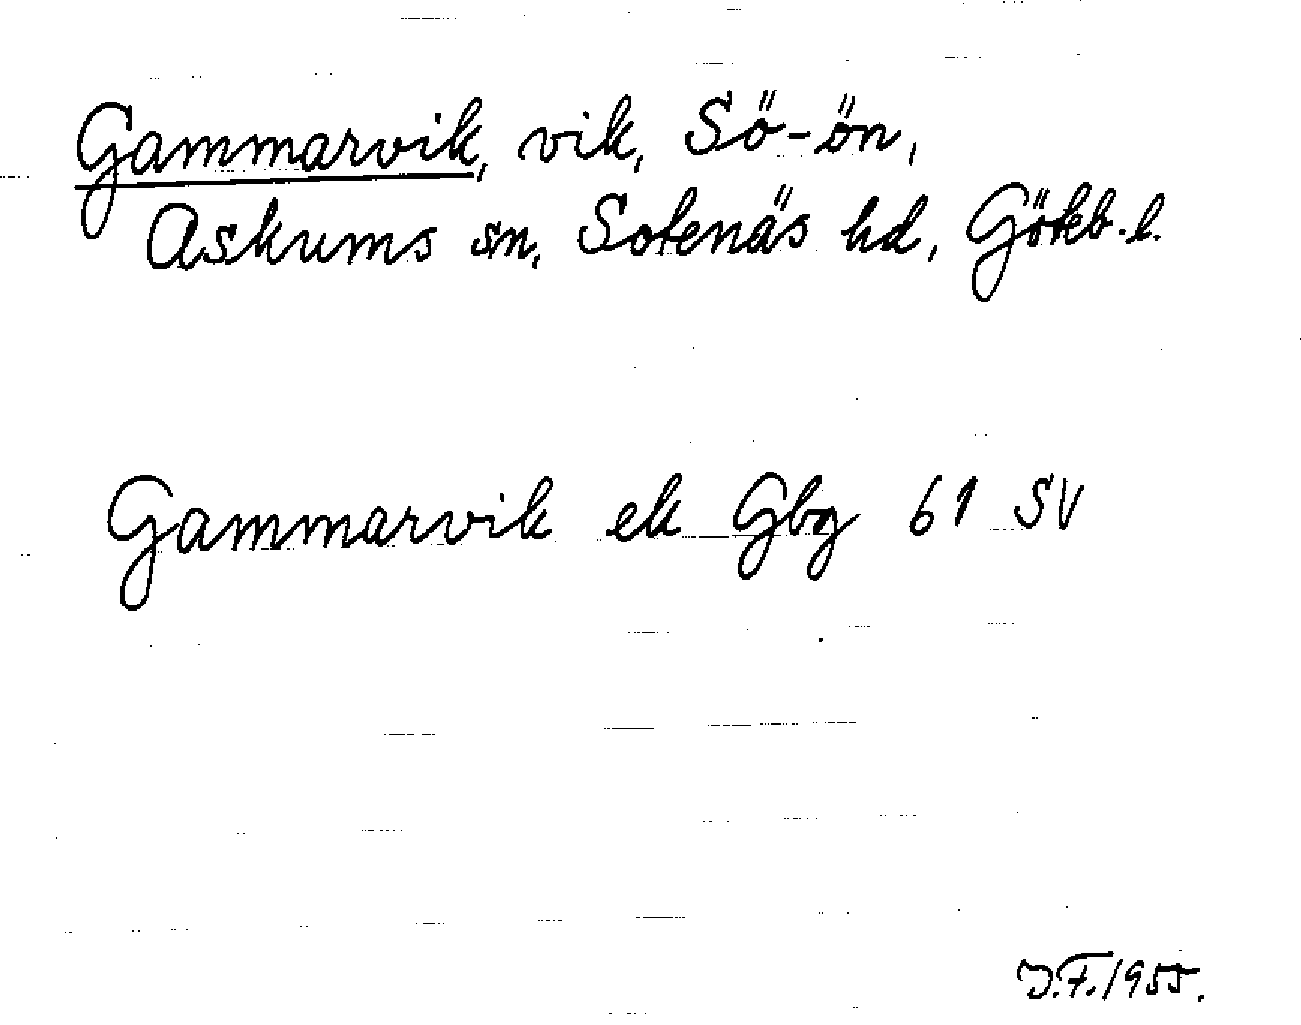 Gammarvik, vik, Sö-ön,
Askums sn, Sotenäs hd, Götebs.l.
Gammarvik ek Gbg 61 SV
J.F./1955.